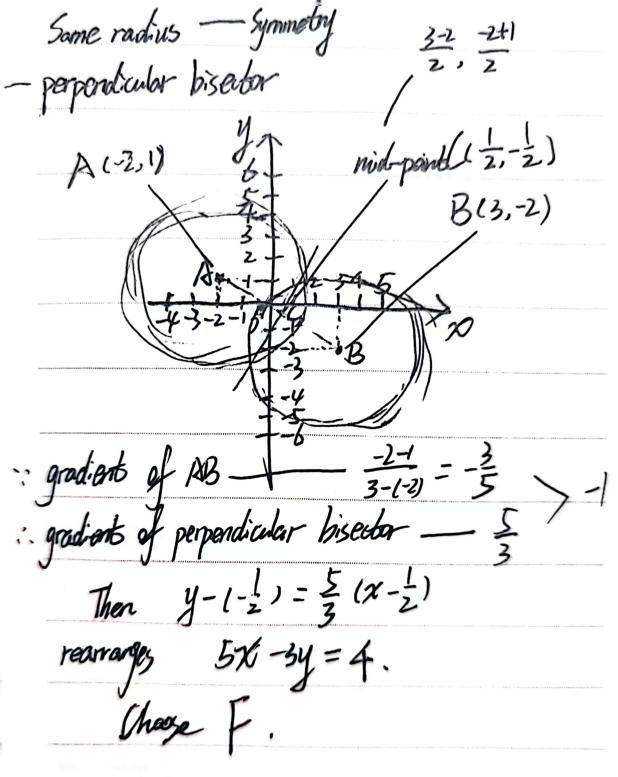 Same radius — Symmetry
- perpendicular bisector
3-2/2, -2+1/2
A(-2,1)
mid-point(1/2, -1/2)
B(3,-2)
y
6
5
4
3
2
1
A
-4 -3 -2 -1 0 2 3 4 5
x
-1
-2
B
-3
-4
-5
-6
∵ gradient of AB — -2-1/3-(-2) = -3/5
> -1
∴ gradient of perpendicular bisector — 5/3
Then y-(-1/2) = 5/3 (x-1/2)
rearranges 5x-3y=4.
Choose F.